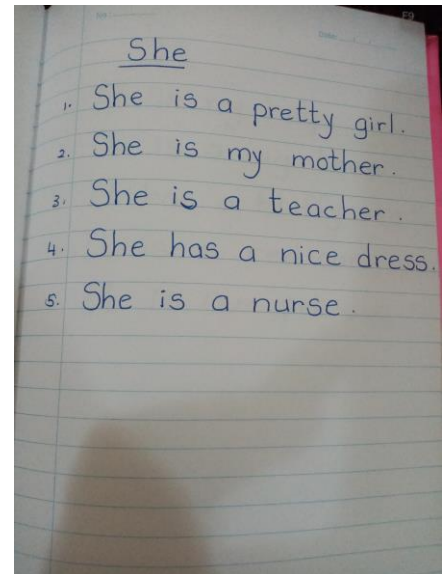 She
1. She is a pretty girl.
2. She is my mother.
3. She is a teacher.
4. She has a nice dress.
5. She is a nurse.